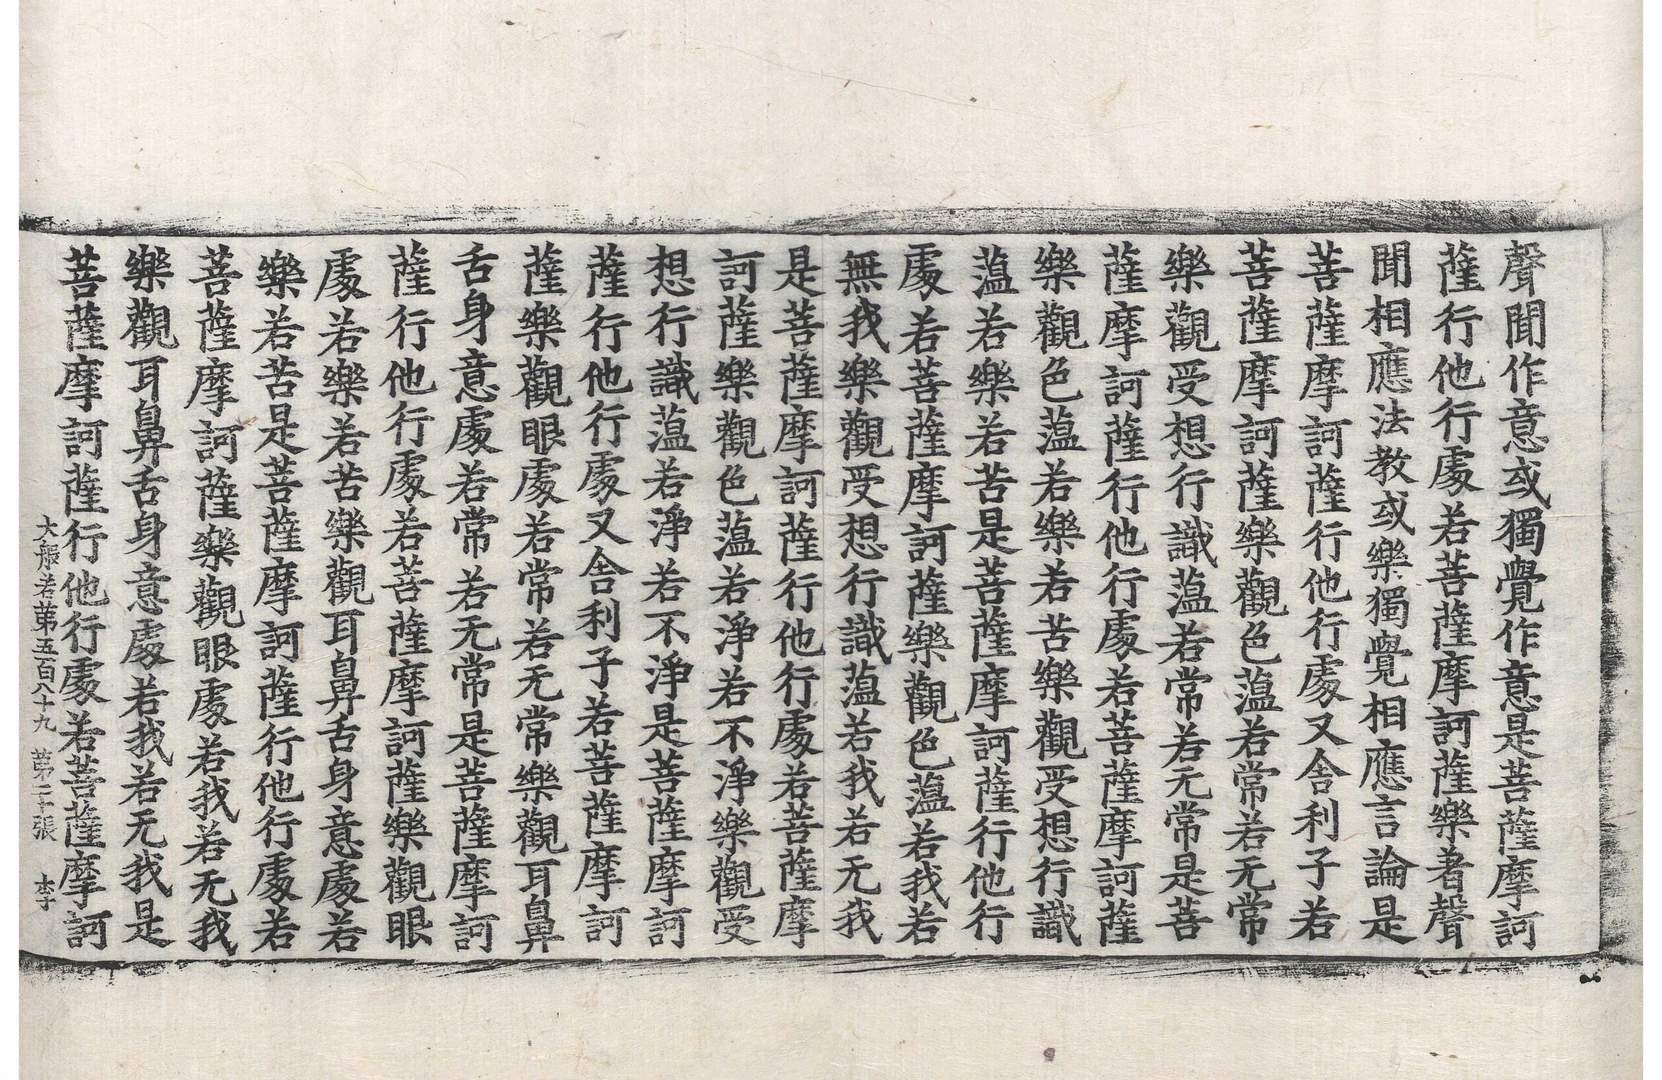 聲聞作意或獨覺作意是菩薩摩訶
薩行他行處若菩薩摩訶薩樂著聲
聞相應法教或樂獨覺相應言論是
菩薩摩訶薩行他行處又舍利子若
菩薩摩訶薩樂觀色薀若常若无常
樂觀受想行識薀若常若无常是菩
薩摩訶薩行他行處若菩薩摩訶薩
樂觀色薀若樂若苦樂觀受想行識
薀若樂若苦是菩薩摩訶薩行他行
處若菩薩摩訶薩樂觀色薀若我若
無我樂觀受想行識薀若我若无我
是菩薩摩訶薩行他行處若菩薩摩
訶薩樂觀色薀若淨若不淨樂觀受
想行識薀若淨若不淨是菩薩摩訶
薩行他行處又舍利子若菩薩摩訶
薩樂觀眼處若常若无常樂觀耳鼻
舌身意處若常若无常是菩薩摩訶
薩行他行處若菩薩摩訶薩樂觀眼
處若樂若苦樂觀耳鼻舌身意處若
樂若苦是菩薩摩訶薩行他行處若
菩薩摩訶薩樂觀眼處若我若无我
樂觀耳鼻舌身意處若我若无我是
菩薩摩訶薩行他行處若菩薩摩訶
大般若苐五百八十九 苐二十張 李